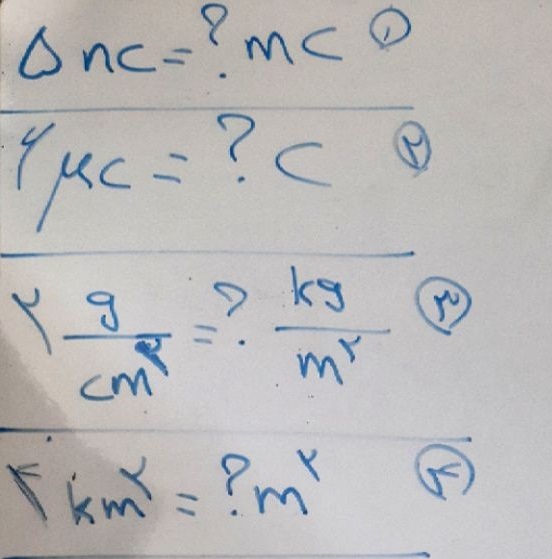 ۵ nc = ? mc ①
۲ μc = ? c ②
۲ g/cm^۲ = ? kg/m^۲ ③
۴ km^۲ = ? m^۲ ④